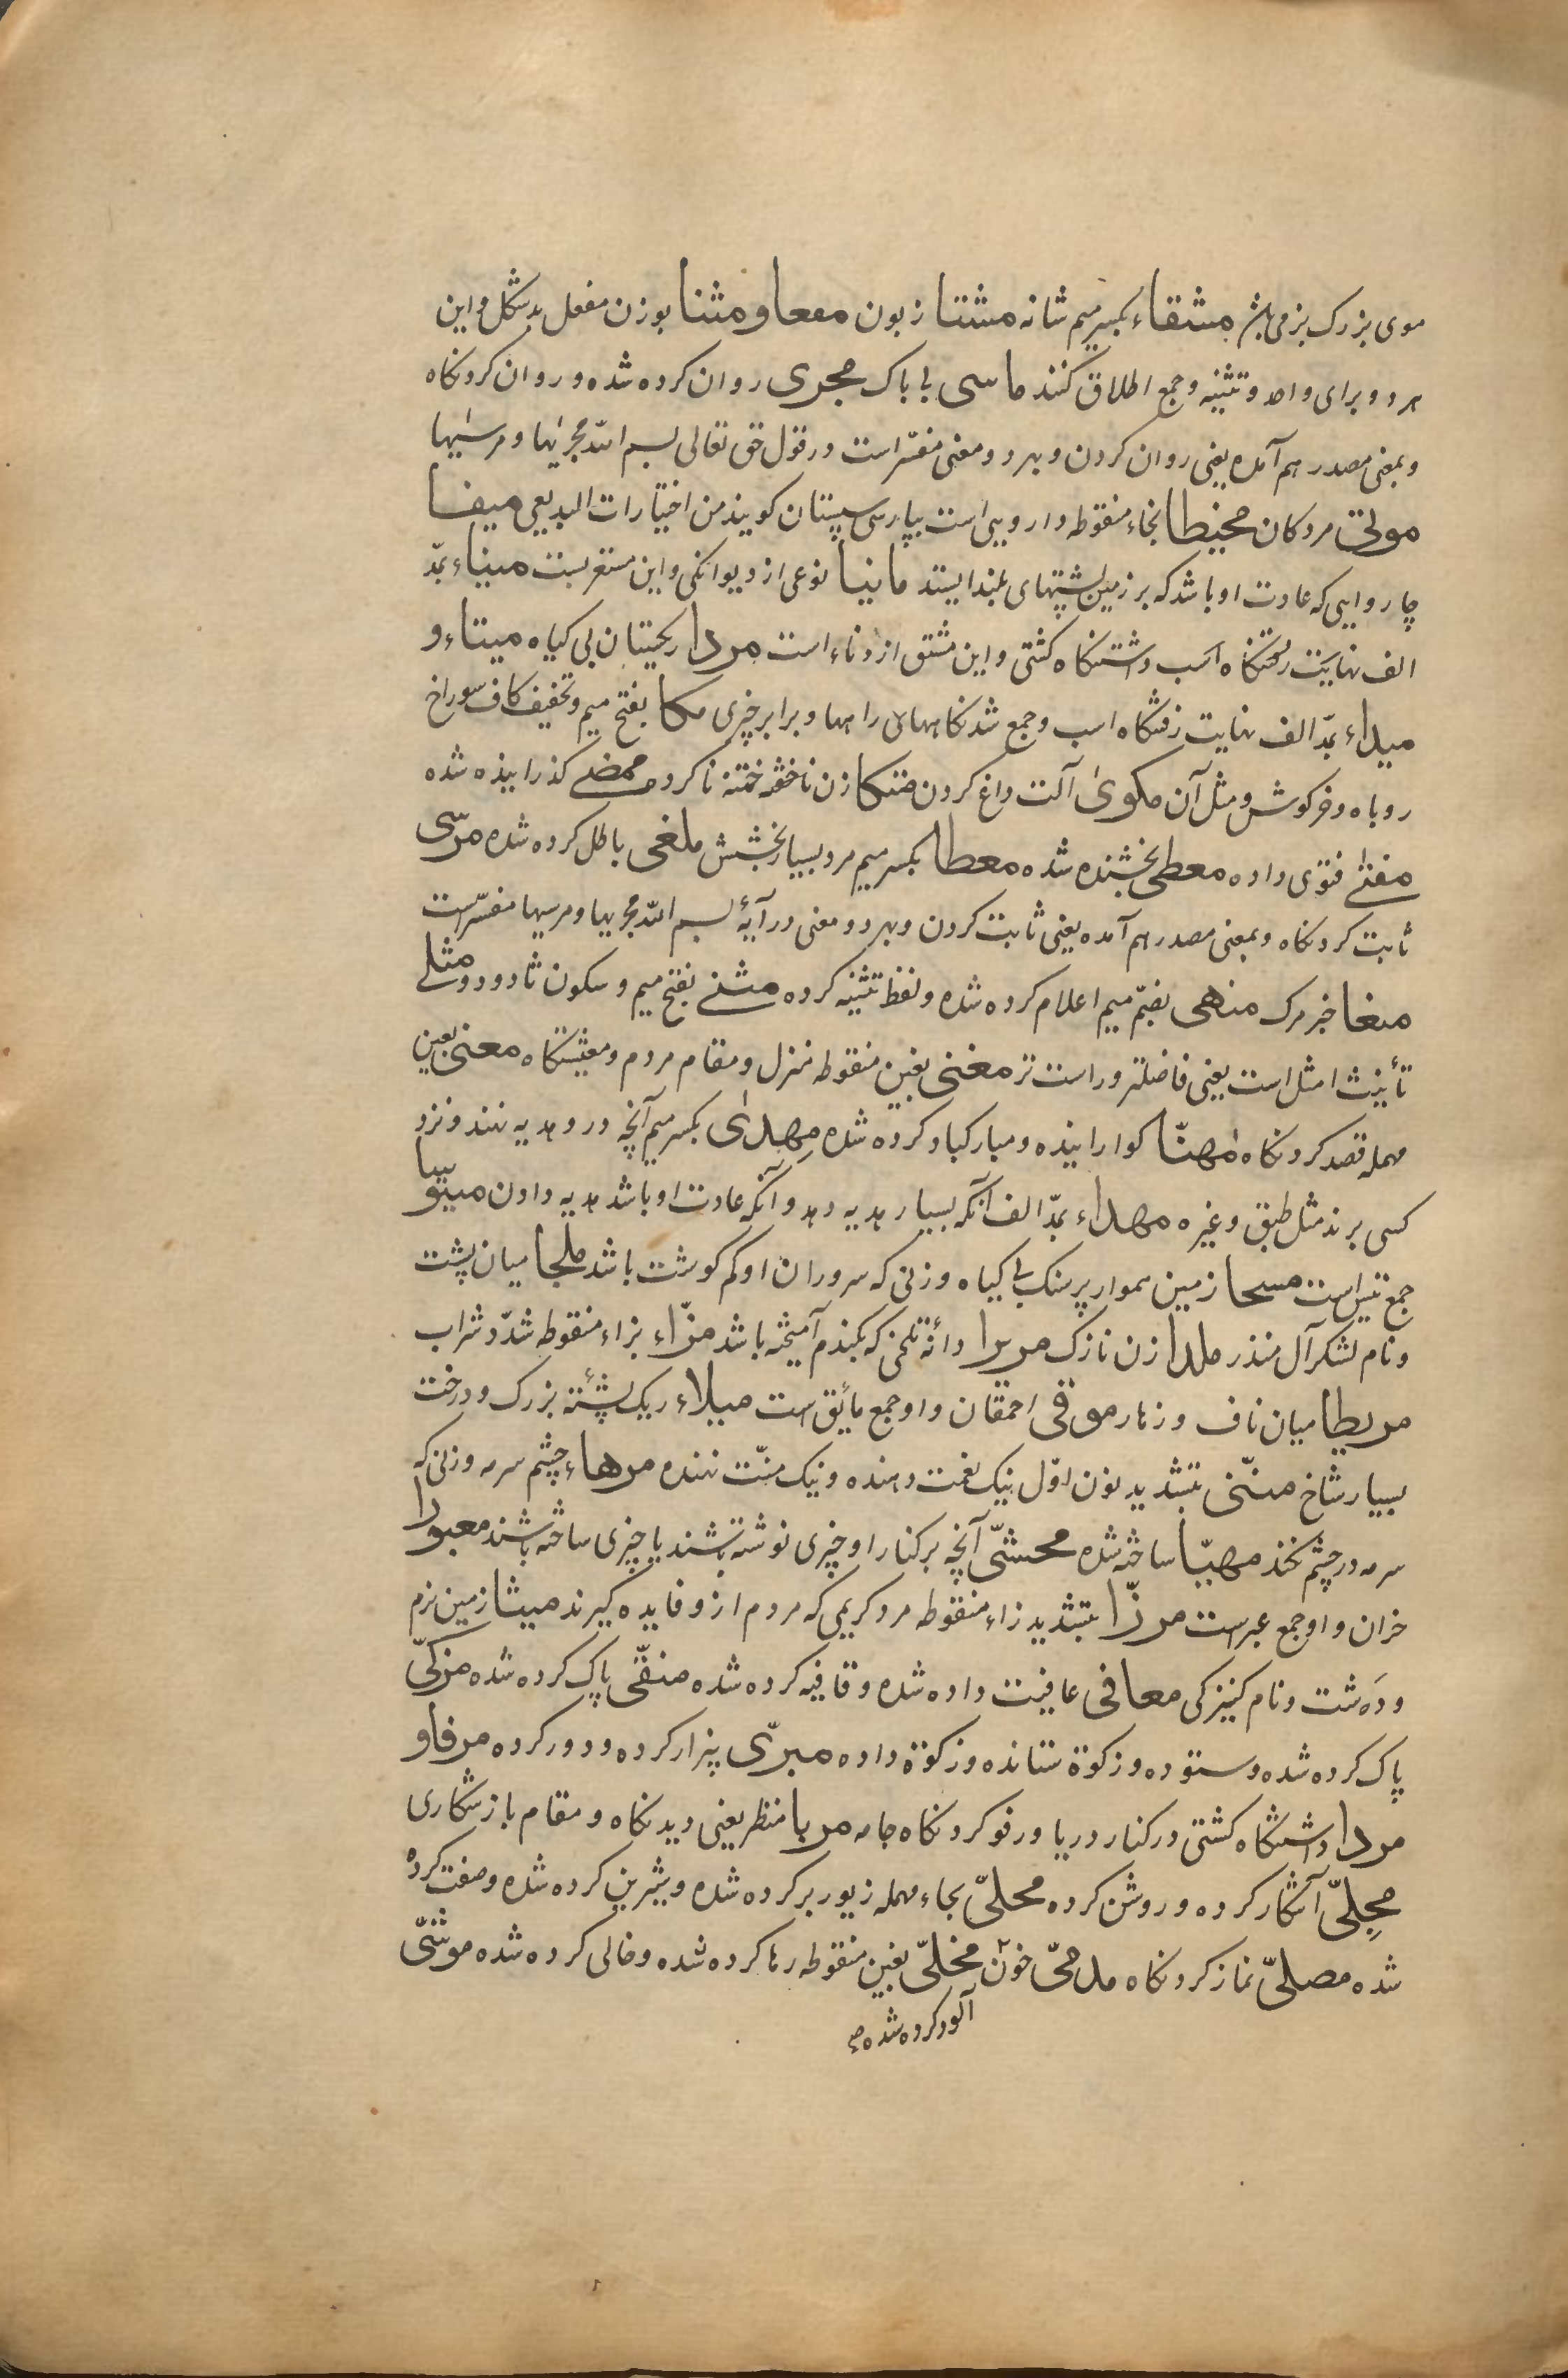 موی بزرک بز می باشد مشقاء بکسر میم شانه مشتا زبون معا و مثنا بوزن مفعل بد شکل و این
هر دو برای واحد و تثنیه و جمع اطلاق کنند ماسی بی باک مجری روان کرده شده و روان کردنکاه
و بمعنی مصدر هم آمده یعنی روان کردن و بهر دو معنی مفسّر است در قول حق تعالی بسم الله مجریها و مرسیها
موتی مردکان مخیطا بخاء منقوطه دارویی است بپارسی سپستان کویند من اختیارات البدیعی میفا
چاروایی که عادت او باشد که بر زمین پشتهای بلند ایستد مانیا نوعی از دیوانکی و این مستغربست میناء بمدّ
الف نهایت رفتنکاه اسب داشتنکاه کشتی و این مشتق از وناء است مردا ریکستان بی کیاه میتاء و
میداء بمدّ الف نهایت رفتنکاه اسب و جمع شدنکاههای راهها و برابر چیزی مکا بفتح میم و تخفیف کاف سوراخ
روباه و خرکوش و مثل آن مکوی آلت داغ کردن متکا زن ناخفه ختنه ناکرده ممضی کذرانیده شده
مفتی فتوی داده معطی بخشنده شده معطا بکسر میم مرد بسیار بخشش ملغی باطل کرده شده مرسی
ثابت کردنکاه و بمعنی مصدر هم آمده یعنی ثابت کردن و بهر دو معنی در آیهٔ بسم الله مجریها و مرسیها مفسّرست
منعا خبر مرک منهی بضمّ میم اعلام کرده شده و لفظ تثنیه کرده مثنی بفتح میم و سکون ثا دو دو مثلی
تأنیث امثل است یعنی فاضلتر و راست تر مغنی بغین منقوطه منزل و مقام مردم و معیشتکاه معنی بعین
مهمله قصد کردنکاه مهنّا کوارانیده و مبارکباد کرده شده مهدی بکسر میم آنچه در و هدیه نهند و نزد
کسی برند مثل طبق و غیره مهداء بمدّ الف آنکه بسیار هدیه دهد و آنکه عادت او باشد هدیه دادن متیوتا
جمع تیس است مسحا زمین هموار پر سنک بی کیاه و زنی که سر و ران او کم کوشت باشد ملجا میان پشت
و نام لشکر آل منذر ملدا زن نازک مریرا دانهٔ تلخی که بکندم آمیخته باشد مزّاء بزاء منقوطه شدّد شراب
مریطا میان ناف و زهار موقی احمقان و او جمع مائق است میلاء ریک پشتهٔ بزرک و درخت
بسیار شاخ منّنی بتشدید نون اوّل نیک نعمت دهنده و نیک منّت نهنده مرهاء چشم سرمه و زنی که
سرمه در چشم نکند مهیّا ساخته شده محشّی آنچه بر کنار او چیزی نوشته باشند یا چیزی ساخته باشند معبورا
خران و او جمع عیرست مرزّا بتشدید زاء منقوطه مرد کریمی که مردم ازو فایده کیرند میثا زمین نرم
و دَه شت و نام کنیزکی معافی عافیت داده شده و قافیه کرده شده منقّی پاک کرده شده مزکّی
پاک کرده شده و ستوده و زکوة ستانده و زکوة داده مبرّی بیزار کرده و دور کرده مرفا و
مردا داشتنکاه کشتی در کنار دریا و رفو کردنکاه جامه مربا منظر یعنی دیدنکاه و مقام باز شکاری
مجلّی آشکار کرده و روشن کرده محلّی بحاء مهمله زیور بر کرده شده و شیرین کرده شده و صفت کرده
شده مصلّی نماز کردنکاه مدمّی خون مخلّی بغین منقوطه رها کرده شده و خالی کرده شده موشّی
آلود کرده شده